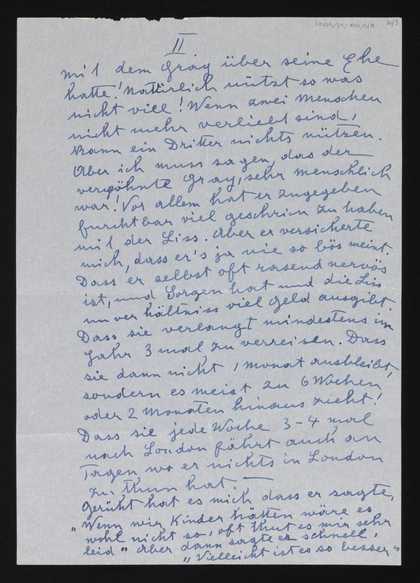 II
mit dem Gray über seine Ehe
hatte! Natürlich nützt so was
nicht viel! Wenn zwei Menschen
nicht mehr verliebt sind,
kann ein Dritter nichts nützen.
Aber ich muss sagen, das der
verwöhnte Gray, sehr menschlich
war! Vor allem hat er zugegeben
furchtbar viel geschrien zu haben
mit der Liss. Aber er versicherte
mich, dass er's ja nie so bös meint.
Dass er selbst oft rasend nervös
ist, und Sorgen hat und die Liss
unverhältniss viel Geld ausgibt.
Dass sie verlangt mindestens im
Jahr 3 mal zu verreisen. Dass
sie dann nicht 1 Monat ausbleibt,
sondern es meist zu 6 Wochen
oder 2 Monaten hinaus zieht!
Dass sie jede Woche 3-4 mal
nach London fährt auch an
Tagen wo er nichts in London
zu thun hat. —
Gerührt hat es mich dass er sagte,
"Wenn wir Kinder hätten wäre es
wohl nicht so, oft thut es mir sehr
leid" Aber dann sagte er schnell,
"Vielleicht ist es so besser"